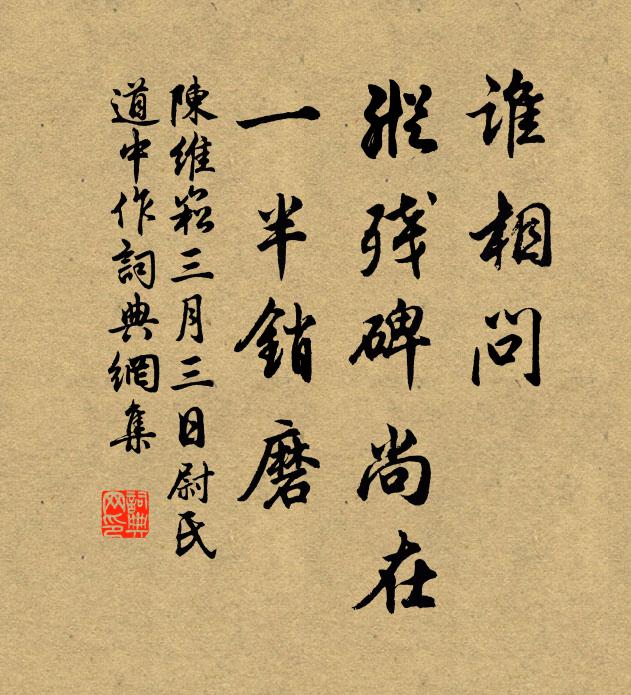 誰相問
縱残碑尚在
一半銷磨
陳維崧三月三日尉氏
道中作詞典網集
詞典
网印